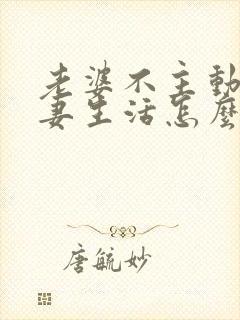 老婆不主動
妻生活怎麼
唐毓妙